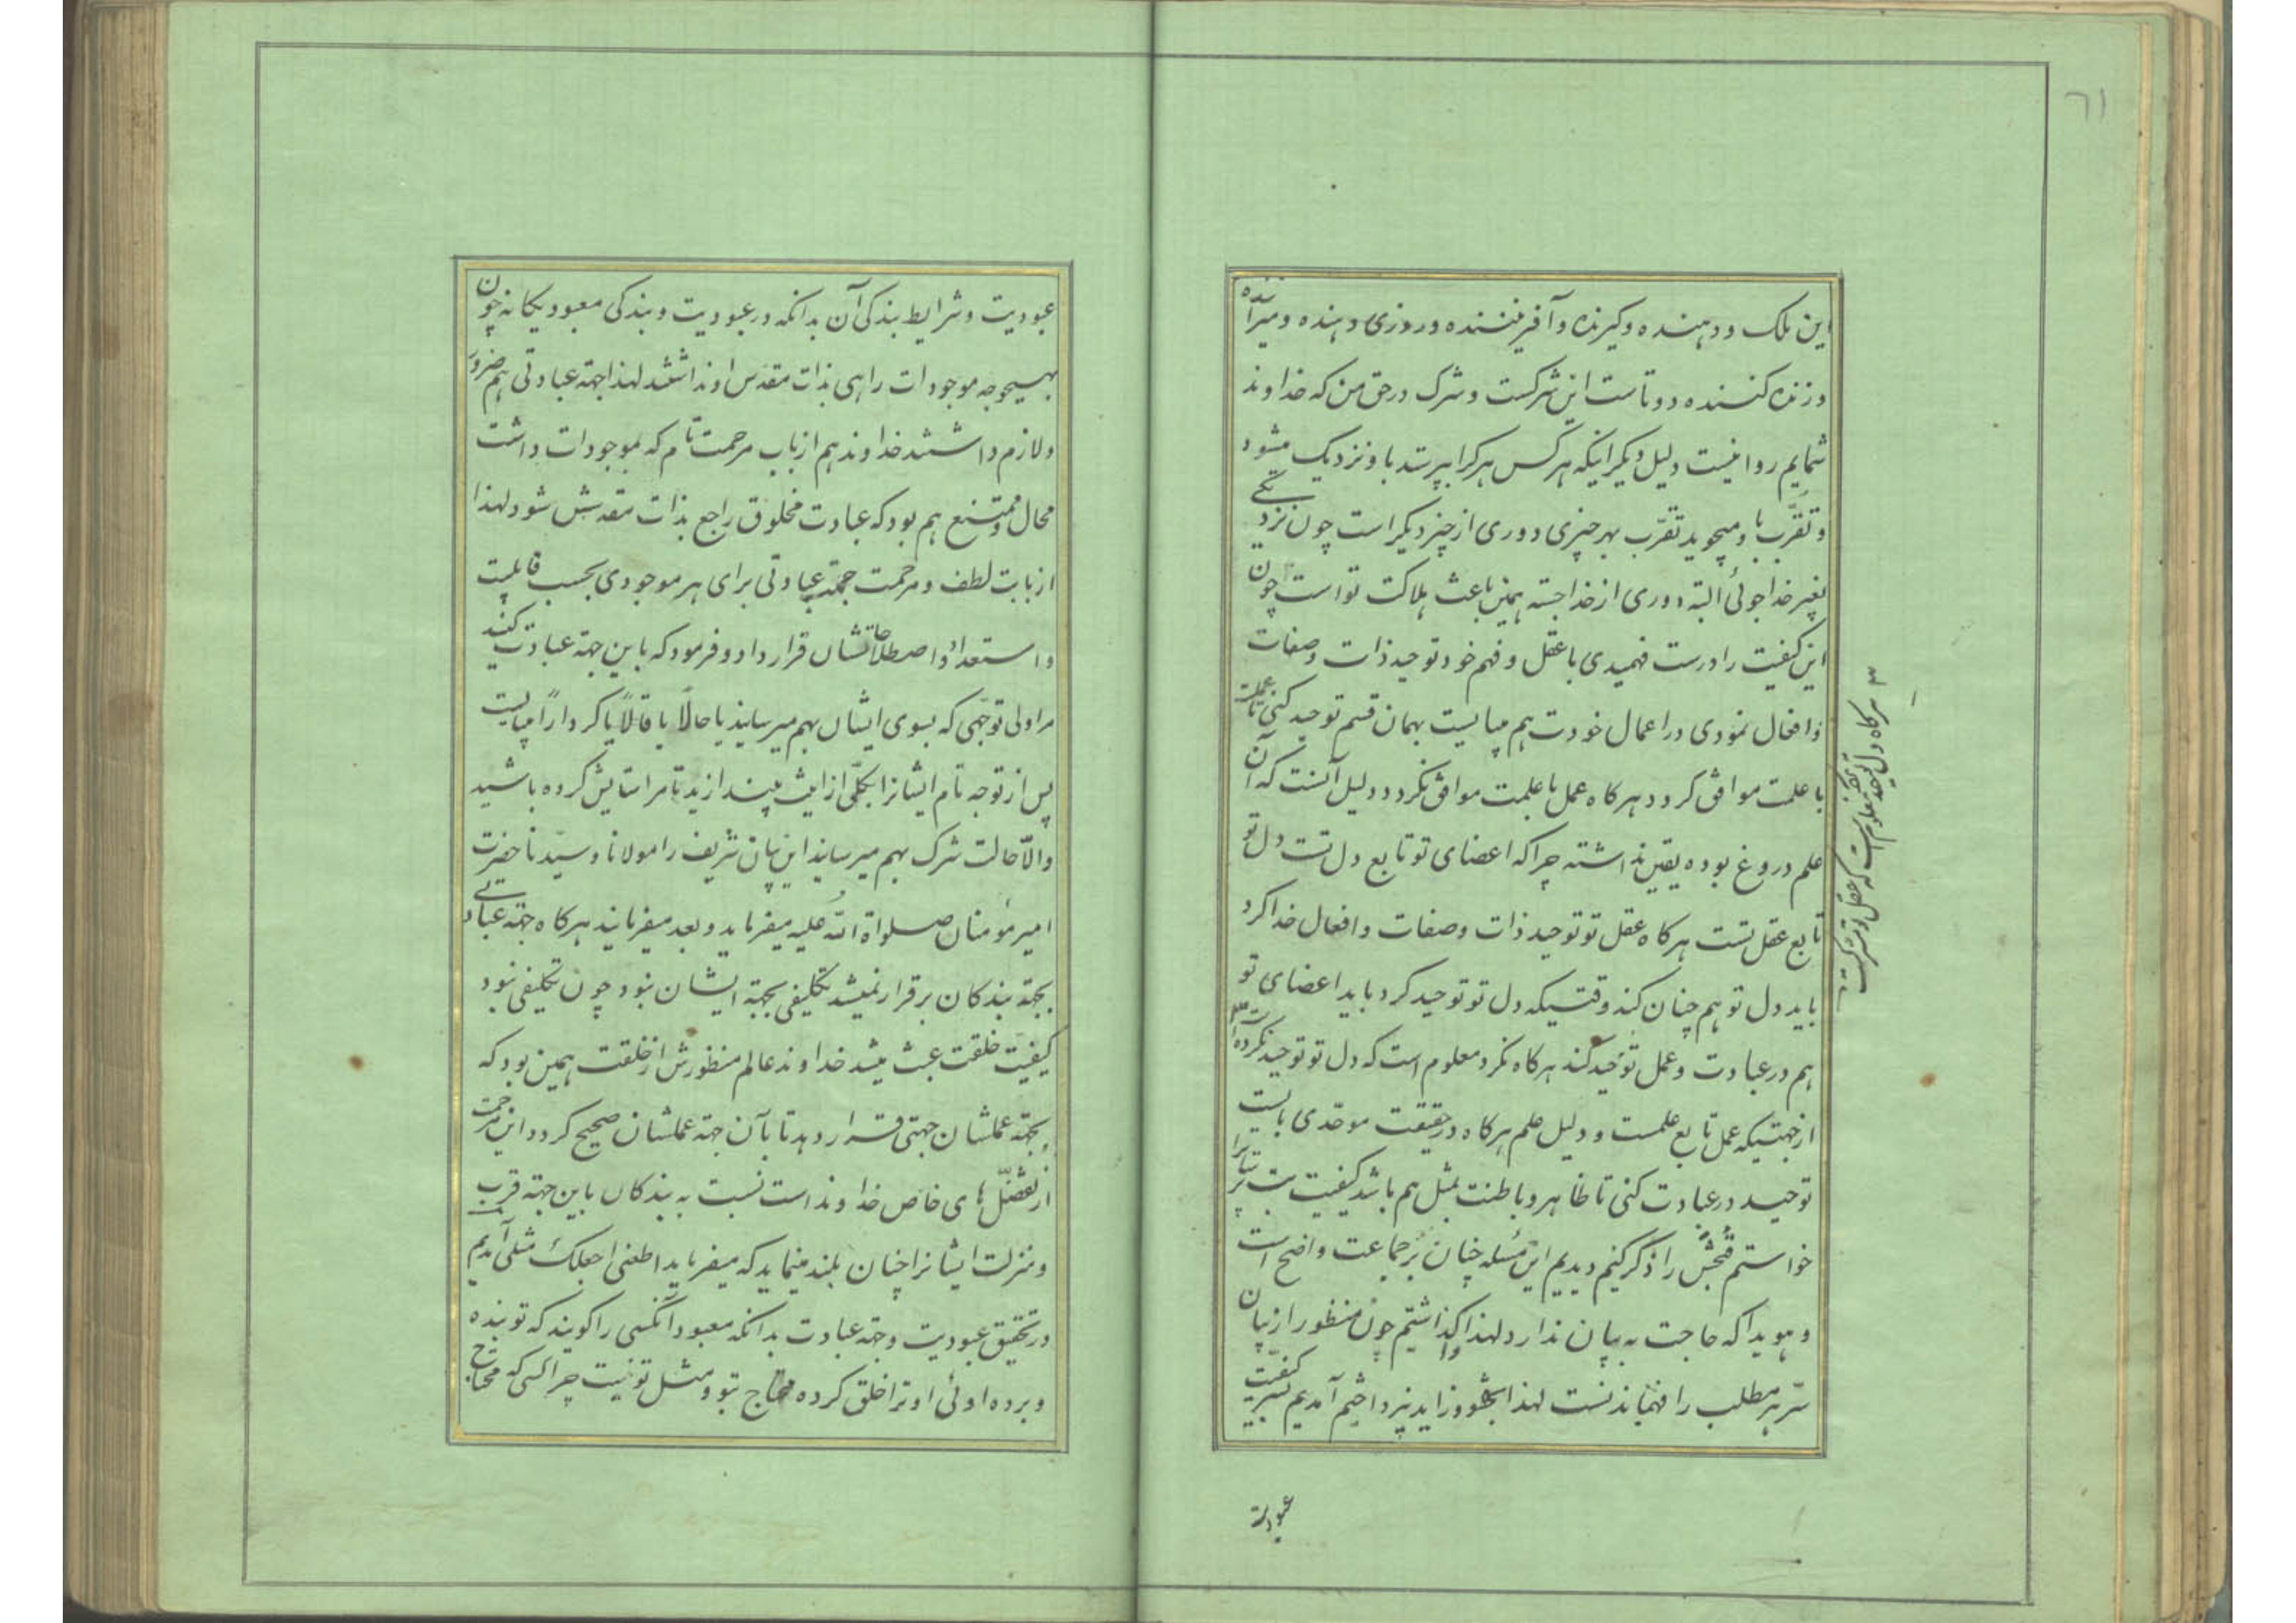 ٦١
این ملک و دهنده و گیرنده و آفریننده و روزی دهنده و میراننده
و زنده کننده دوتاست این شرکست و شرک در حق من که خداوند
شمایم روا نیست دلیل دیگر اینکه هر کس هر کرا بپرستد باو نزدیک میشود
و تقرّب باو میجوید تقرّب بهر چیزی دوری از چیز دیگر است چون نزدیکی
بغیر خدا جوئی البته دوری از خدا جسته همین باعث هلاکت تو است چون
این کیفیت را درست فهمیدی با عقل و فهم خود توحید ذات و صفات
و افعال نمودی در اعمال خودت هم میبایست بهمان قسم توحید کنی تا عملت
با علمت موافق کردد هرکاه عمل با علمت موافق نکردد دلیل آنست که آن
علم دروغ بوده یقین نداشته چرا که اعضای تو تابع دل تست دل تو
تابع عقل تست هرکاه عقل تو توحید ذات و صفات و افعال خدا کرد
باید دل تو هم چنان کند وقتیکه دل تو توحید کرد باید اعضای تو
هم در عبادت و عمل توحید کند هرکاه نکرد معلوم است که دل تو توحید نکرده است ۳
از جهتیکه عمل تابع علمست و دلیل علم هرکاه در حقیقت موحّدی بایست
توحید در عبادت کنی تا ظاهر و باطنت بمثل هم باشد کیفیت بت پرستی را
خواستم قبحش را ذکر کنیم دیدیم این مسئله چنان بر جماعت واضح است
و هویدا که حاجت به بیان ندارد لهذا واکذاشتیم چون منظور از بیان
سرّ هر مطلب را فهمانیدنست لهذا بحشو و زاید نپرداختیم آمدیم بسر کیفیّت
۳ هرکاه دل توحید نکرد معلوم است که عقل تو نکرده
عبودیت
عبودیت و شرایط بندکی آن بدانکه در عبودیت و بندکی معبود یکانه چون
بهیچوجه موجودات راهی بذات مقدس او نداشتند لهذا جهة عبادتی هم ضرور
و لازم داشتند خداوند هم از باب مرحمت تام که بموجودات داشت
محال و ممتنع هم بود که عبادت مخلوق راجع بذات مقدسش شود لهذا
از بابت لطف و مرحمت جهة عبادتی برای هر موجودی بحسب قابلیت
و استعداد و اصطلاحاتشان قرار داد و فرمود که باین جهة عبادت کنید
مرا ولی توجّهی که بسوی ایشان بهم میرسانید یا حالاً یا قالاً یا کرداراً میبایست
پس از توجه تام ایشانرا بکلّی از میان بیندازید تا مرا ستایش کرده باشید
والّا حالت شرک بهم میرسانید این بیان شریف را مولانا و سیّدنا حضرت
امیرمؤمنان صلواة الله علیه میفرماید و بعد میفرمایند هرکاه جهة عبادتی
بجهة بندکان برقرار نمیشد تکلیفی بجهة ایشان نبود چون تکلیفی نبود
کیفیّت خلقت عبث میشد خداوند عالم منظورش از خلقت همین بود که
بجهة عملشان جهتی قرار دهد تا بآن جهة عملشان صحیح کردد این مرحمت
از تفضّل های خاص خداوند است نسبت به بندکان باین جهة قرب
و منزلت ایشانرا چنان بلند مینماید که میفرماید اطعنی اجعلک مثلی آمدیم
در تحقیق عبودیت و جهة عبادت بدانکه معبود آنکسی را کویند که تو بنده
و برده اوئی او ترا خلق کرده محتاج بتو و مثل تو نیست چرا کسی که محتاج